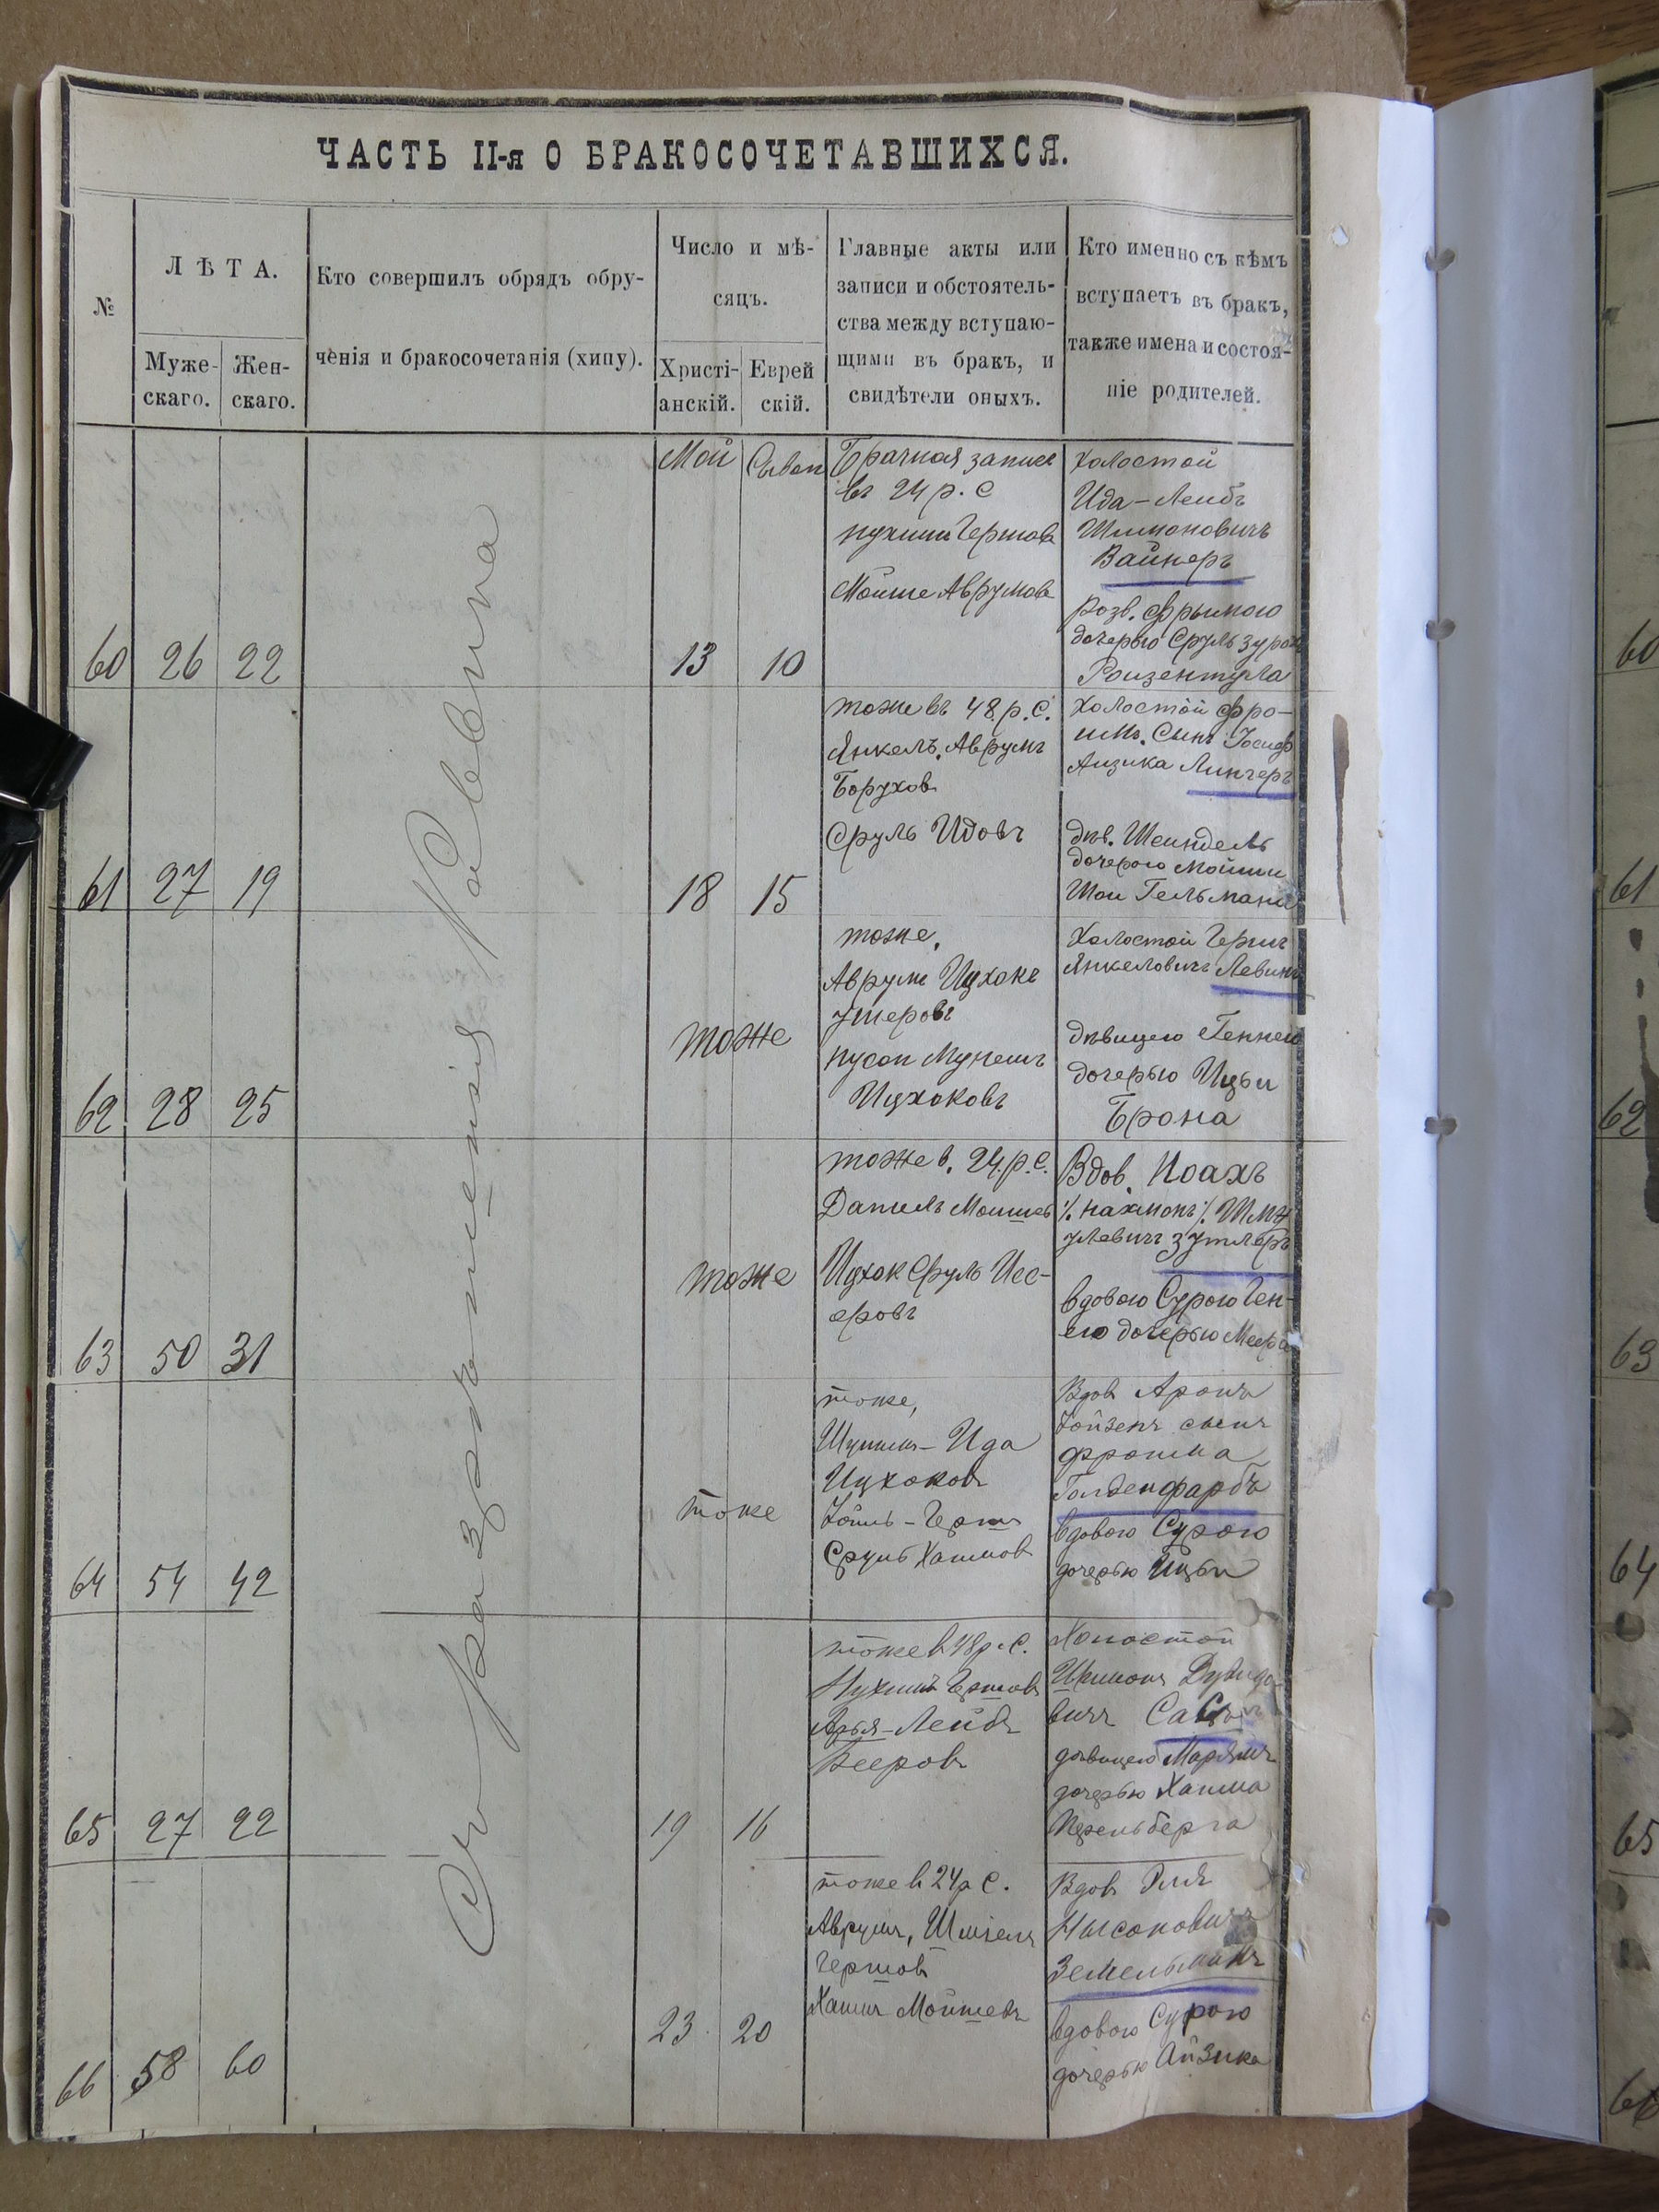 ЧАСТЬ II-я О БРАКОСОЧЕТАВШИХСЯ.
№
ЛѢТА.
Муже-
скаго.
Жен-
скаго.
Кто совершилъ обрядъ обру-
ченія и бракосочетанія (хипу).
Число и мѣ-
сяцъ.
Христі-
анскій.
Еврей
скій.
Главные акты или
записи и обстоятель-
ства между вступаю-
щими въ бракъ, и
свидѣтели оныхъ.
Кто именно съ кѣмъ
вступаетъ въ бракъ,
также имена и состоя-
ніе родителей.
Съ разрѣшенія Раввина
60 26 22
Май Сыван
13 10
Брачная запись
въ 24 р. С
Нухимъ Гершовъ
Мойше Аврумовъ
Холостой
Ида-Лейбъ
Шимоновичъ
Вайнеръ
розв. Фрымою
дочерью Сруль
Ройзентула
61 27 19
18 15
тоже въ 48 р. С.
Янкель, Аврумъ
Боруховъ
Сруль Идовъ
Холостой Фро-
имъ, Сынъ Іосифъ
Айзика Линчеръ
дѣв. Шейндель
дочерью Мойши
Шаи Гельмана
62 28 25
тоже
тоже,
Аврумъ Ицхокъ
Умеровъ
Нусон
Ицхоковъ
Холостой Гершъ
Янкелевичъ Левинъ
дѣвицею Геннею
дочерью Ицьи
Брона
63 50 31
тоже
тоже в. 24 р. С.
Даниль Мошковъ
Ицхок Сруль Иес-
еровъ
Вдов. Ноахъ
·/. Нахмонъ ·/. Шмъ
улевичъ Зутлеръ
вдовою Сурою Ген-
ею дочерью Меера
64 54 42
тоже
тоже,
Ида
Ицхоковъ
Гершъ
Сруль Хаимовъ
Вдовъ Аронъ
сынъ
Фроима
Голденфарбъ
вдовою Сурою
дочерью Ицьи
65 27 22
19 16
тоже въ 48 р. С.
Нухимъ Гершовъ
Арья-Лейбъ
Бееровъ
Холостой
Шимонъ Дувидо-
вичъ
дѣвицею Марьямъ
дочерью Хаима
66 58 60
23 20
тоже въ 24 р С.
Аврумъ, Шміель
Гершовъ
Хаимъ Мойшевъ
Вдовъ Эля
Нысоновичъ
Земельманъ
вдовою Сурою
дочерью Айзика
60
61
62
63
64
65
66